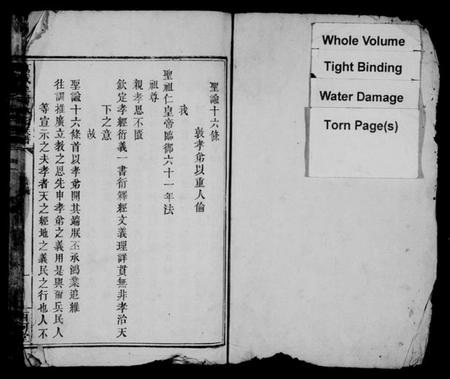 聖諭十六條
敦孝弟以重人倫
我
聖祖仁皇帝臨御六十一年法
祖尊
親孝思不匱
欽定孝經衍義一書衍釋經文義理詳貫無非孝治天
下之意
故
聖諭十六條首以孝弟開其端朕丕承鴻業追維
往訓推廣立教之思先申孝弟之義用是與爾兵民人
等宣示之夫孝者天之經地之義民之行也人不
Whole Volume
Tight Binding
Water Damage
Torn Page(s)